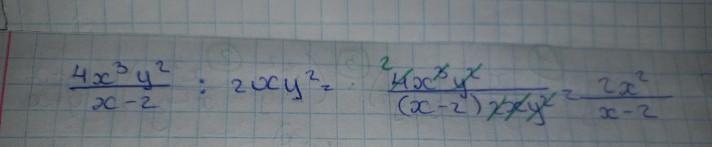 4x³y² / x-2 : 2xy² = ²4x³y² / (x-2)2xy² = 2x² / x-2